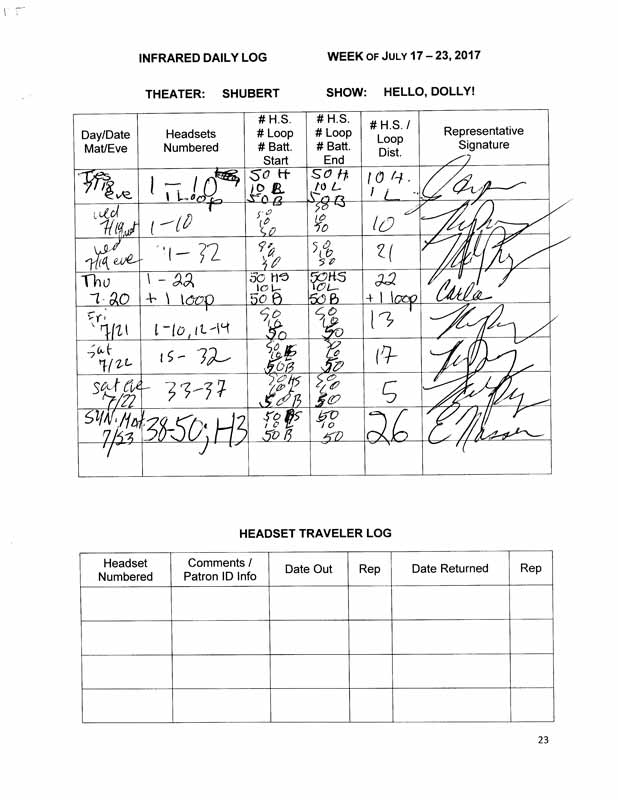 INFRARED DAILY LOG WEEK OF JULY 17 – 23, 2017
THEATER: SHUBERT SHOW: HELLO, DOLLY!
Day/Date Mat/Eve
Headsets Numbered
# H.S. # Loop # Batt. Start
# H.S. # Loop # Batt. End
# H.S. / Loop Dist.
Representative Signature
Tes 7/18 eve
1 – 10
1 Loop
50 H
10 L
50 B
50 H
10 L
50 B
10 H.
1 L
Wed 7/19
1-10
50
10
50
50
10
50
10
Wed 7/19 eve
1-32
50
10
50
21
Thu 7.20
1 - 22
+ 1 loop
50 HS
10L
50 B
50HS
10L
50 B
22
+ 1 loop
Carla
Fri 7/21
1-10, 12-14
50
10
50
50
10
50
13
Sat 7/22
15 - 32
50
50B
50
10
50
17
Sat Eve 7/22
33-37
50 B
50
5
SUN. Mat 7/23
38-50; H3
50 HS
10 L
50 B
50
10
50
26
E Nasser
HEADSET TRAVELER LOG
Headset Numbered
Comments / Patron ID Info
Date Out
Rep
Date Returned
Rep
23